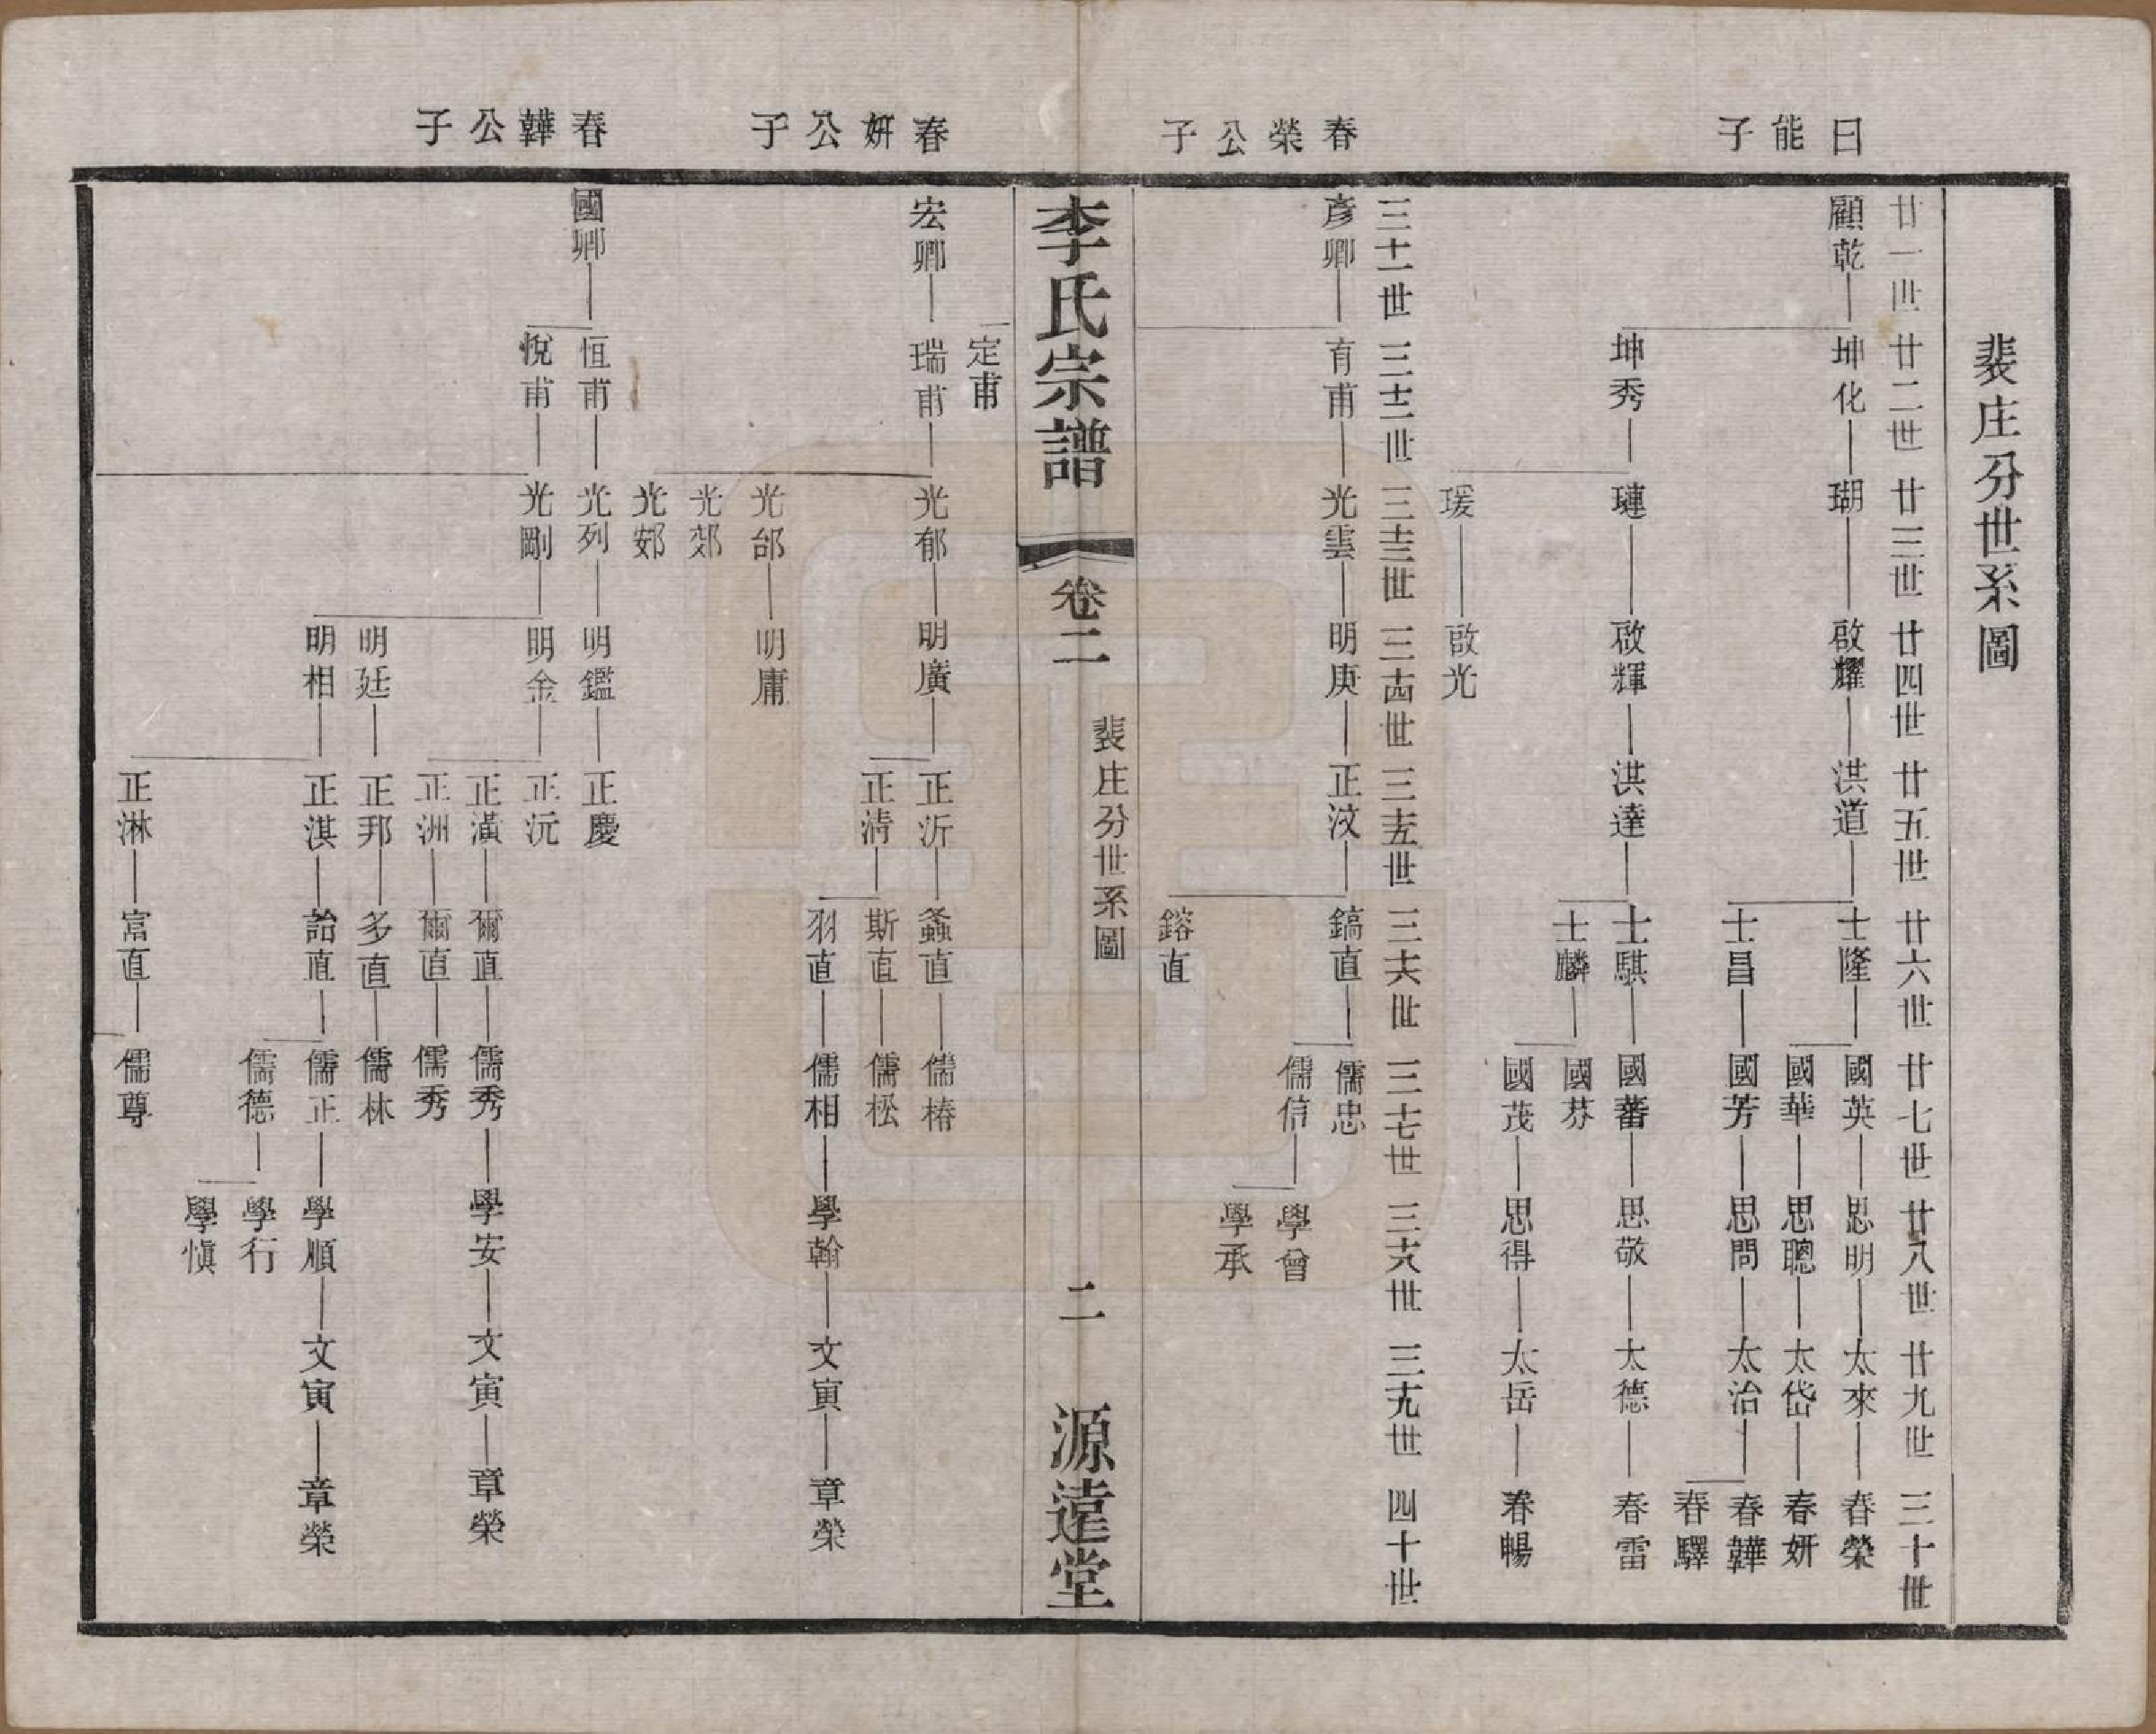 裴庄分世系圖
廿一世 廿二世 廿三世 廿四世 廿五世 廿六世 廿七世 廿八世 廿九世 三十世
曰能子
顧乾 坤化 瑚 啟耀 洪道 士隆 國英 思明 太來 春榮
國華 思聰 太岱 春妍
士昌 國芳 思問 太治 春韡
春驛
坤秀 璉 啟輝 洪達 士騏 國蕃 思敬 太德 春雷
士麟 國芬
國茂 思得 太岳 春暢
瑗 啟光
三十一世 三十二世 三十三世 三十四世 三十五世 三十六世 三十七世 三十八世 三十九世 四十世
春榮公子
彥卿 有甫 光雲 明庚 正汶 鎬直 儒忠
儒信 學曾
學承
鎔直
李氏宗譜 卷二 裴庄分世系圖 二 源逺堂
定甫
春妍公子
宏卿 瑞甫 光郁 明廣 正沂 螽直 儒椿
正清 斯直 儒松
羽直 儒相 學翰 文寅 章榮
光郃 明庸
光郊
光郯
春韡公子
國卿 恒甫 光列 明鑑 正慶
悅甫 光剛 明金 正沅
正潢 爾直 儒秀 學安 文寅 章榮
正洲 爾直 儒秀
明廷 正邦 多直 儒林
明相 正淇 詒直 儒正 學順 文寅 章榮
儒德 學行
學慎
正淋 富直 儒尊